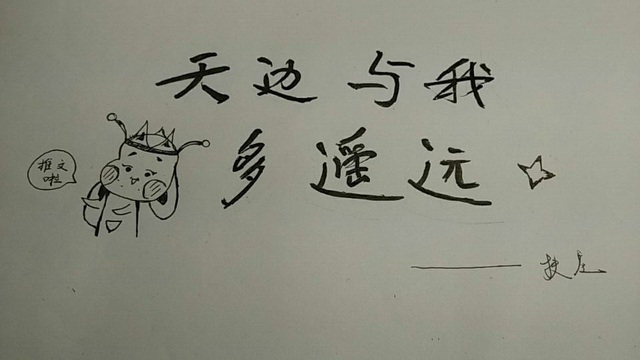 天边与我
多遥远
推文
啦